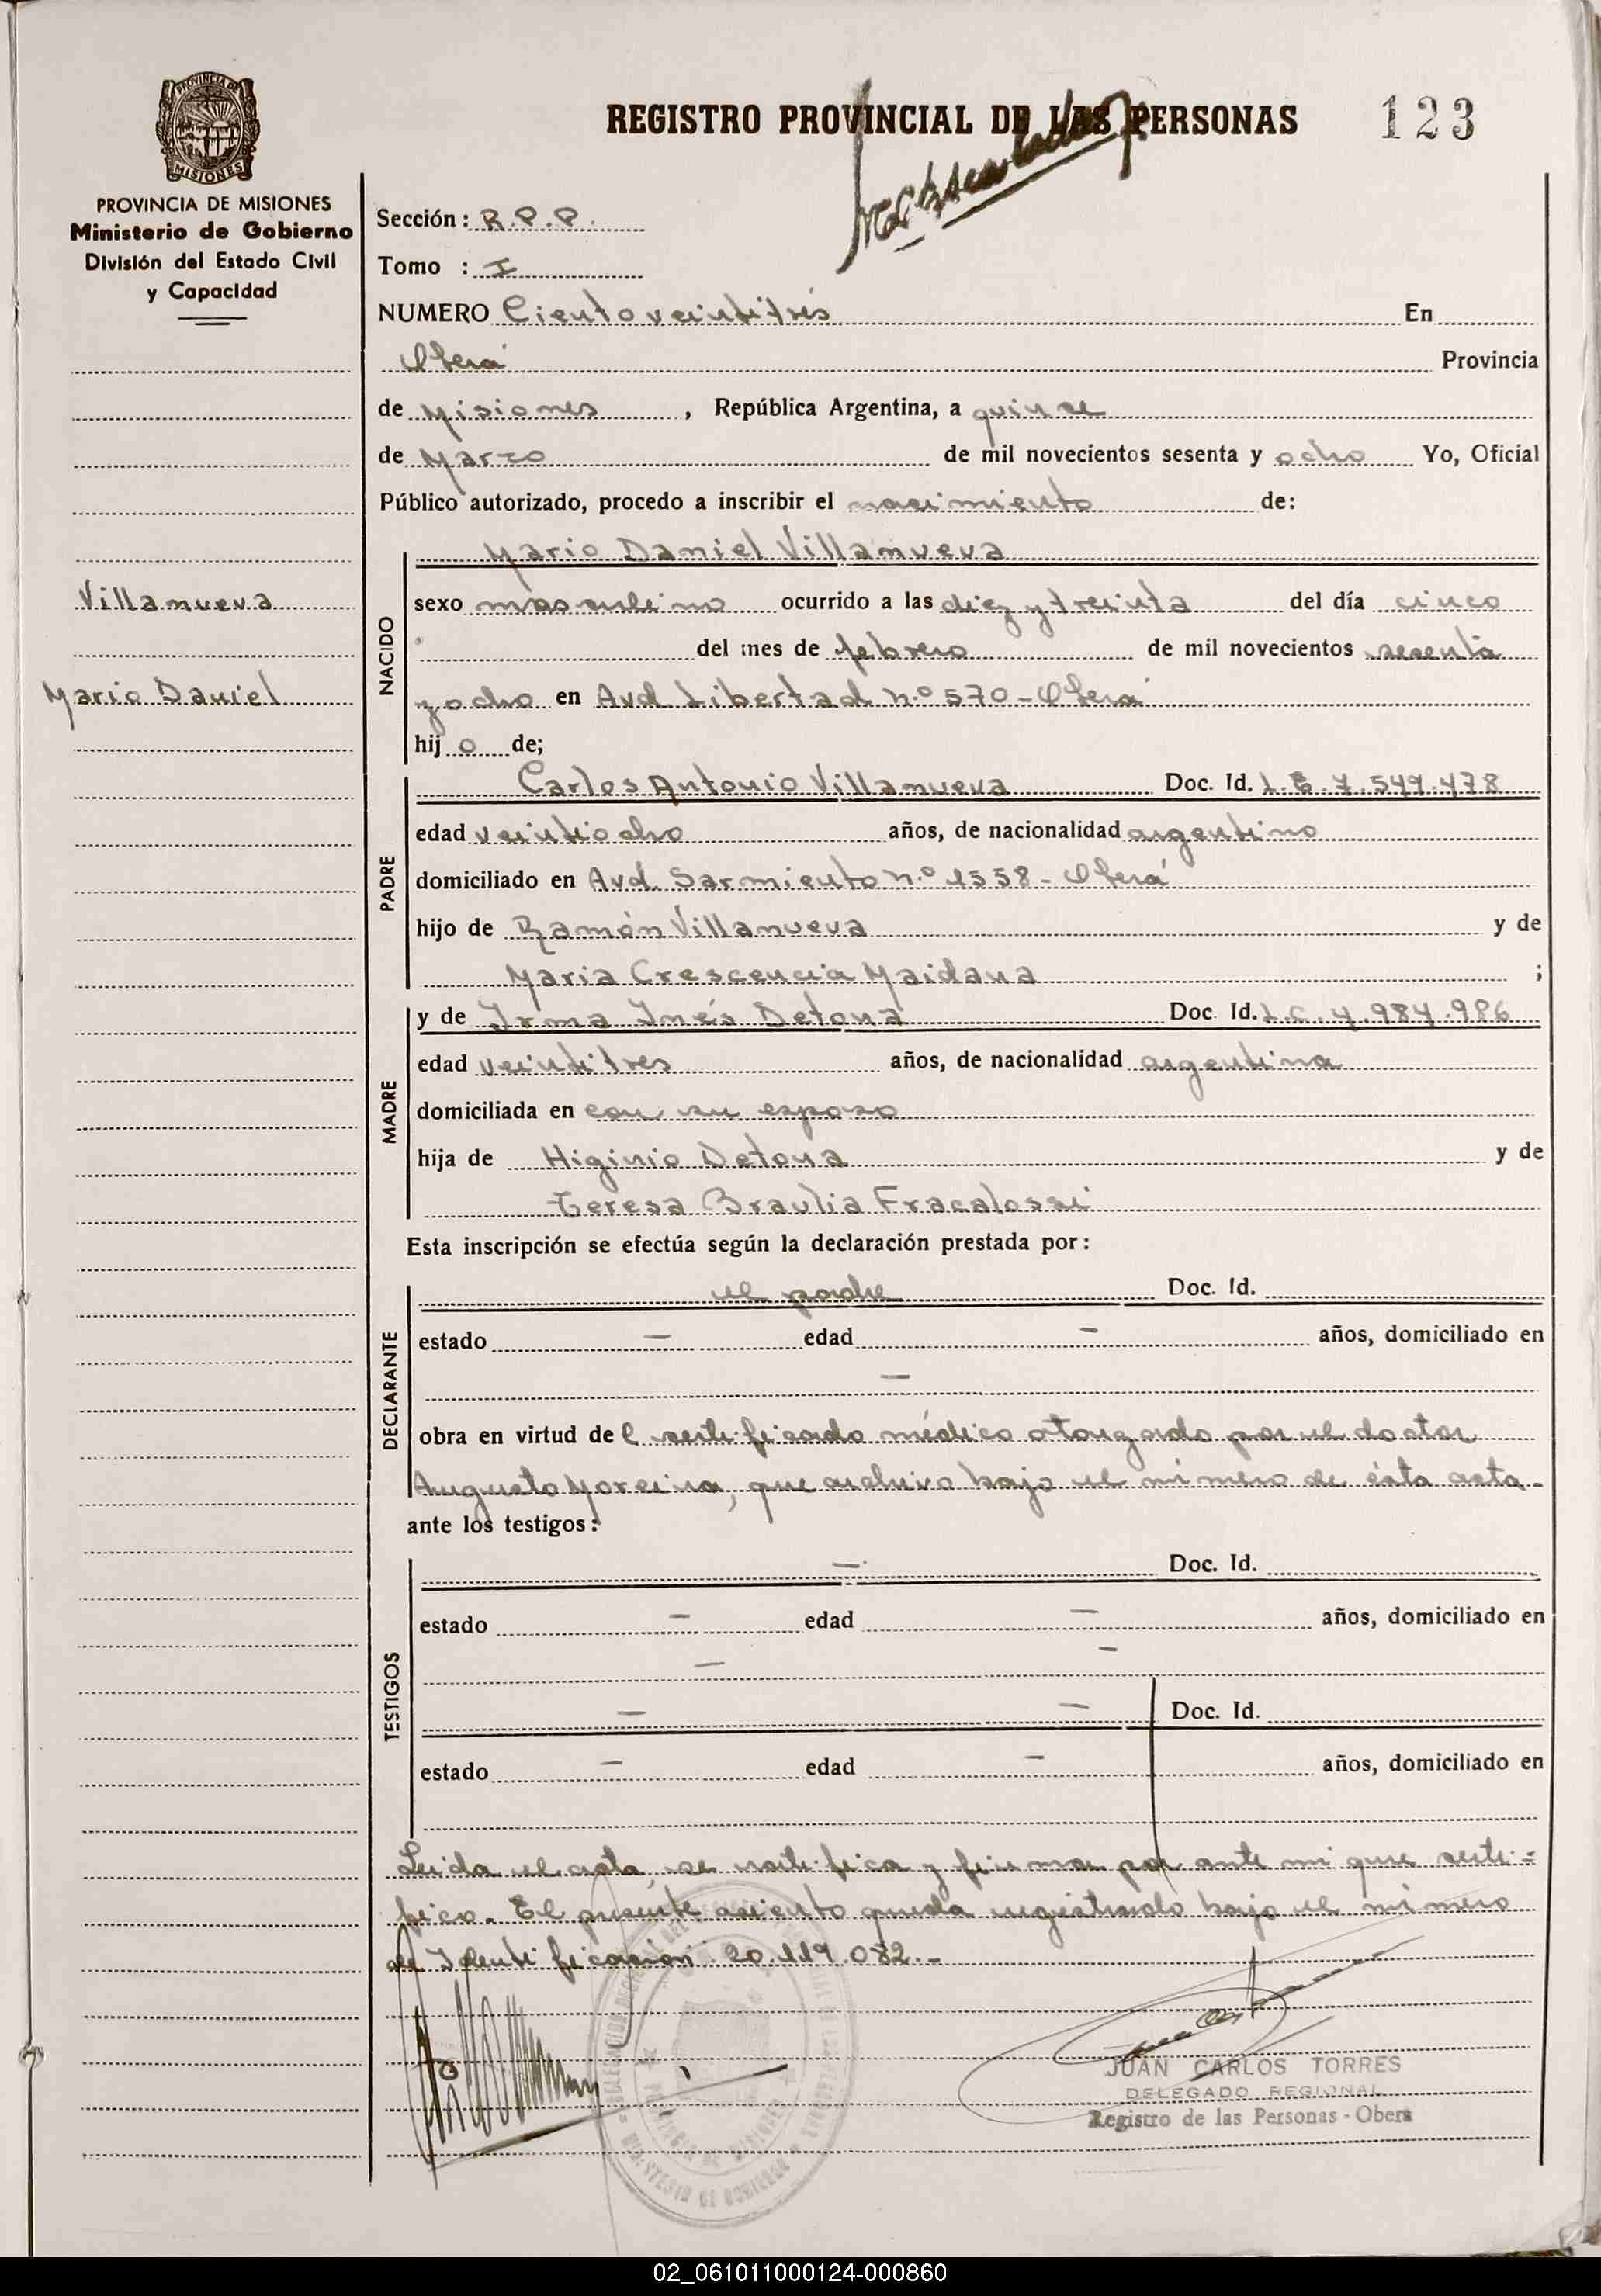 REGISTRO PROVINCIAL DE LAS PERSONAS 123
PROVINCIA DE MISIONES
Ministerio de Gobierno
División del Estado Civil
y Capacidad
Sección: R.P.P.
Tomo : I
NUMERO Ciento veintitrés En
Oberá Provincia
de Misiones, República Argentina, a quince
de Marzo de mil novecientos sesenta y ocho Yo, Oficial
Público autorizado, procedo a inscribir el nacimiento de:
Mario Daniel Villanueva
Villanueva
Mario Daniel
NACIDO
sexo masculino ocurrido a las diez y treinta del día cinco
del mes de febrero de mil novecientos sesenta
y ocho en Avd. Libertad n.º 570 - Oberá
hijo de;
PADRE
Carlos Antonio Villanueva Doc. Id. L.E. 7.549.478
edad veintiocho años, de nacionalidad argentino
domiciliado en Avd. Sarmiento n.º 1558 - Oberá
hijo de Ramón Villanueva y de
Maria Crescencia Maidana ;
MADRE
y de Irma Inés Detona Doc. Id. L.C. 4.984.986
edad veintitres años, de nacionalidad argentina
domiciliada en con su esposo
hija de Higinio Detona y de
Teresa Braulia Fracalossi
Esta inscripción se efectúa según la declaración prestada por:
DECLARANTE
el padre Doc. Id.
estado — edad — años, domiciliado en
—
obra en virtud del certificado médico otorgado por el doctor
Augusto Moreira, que archivo bajo el número de ésta acta.-
ante los testigos:
TESTIGOS
— Doc. Id.
estado — edad — años, domiciliado en
— —
— — Doc. Id.
estado — edad — años, domiciliado en
Leída el acta, se ratifica y firma por ante mi que certi=
fico. El presente asiento queda registrado bajo el número
de Identificación 20.119.082.-
JUAN CARLOS TORRES
DELEGADO REGIONAL
Registro de las Personas - Oberá
PROVINCIA DE MISIONES
MINISTERIO DE GOBIERNO
02_061011000124-000860